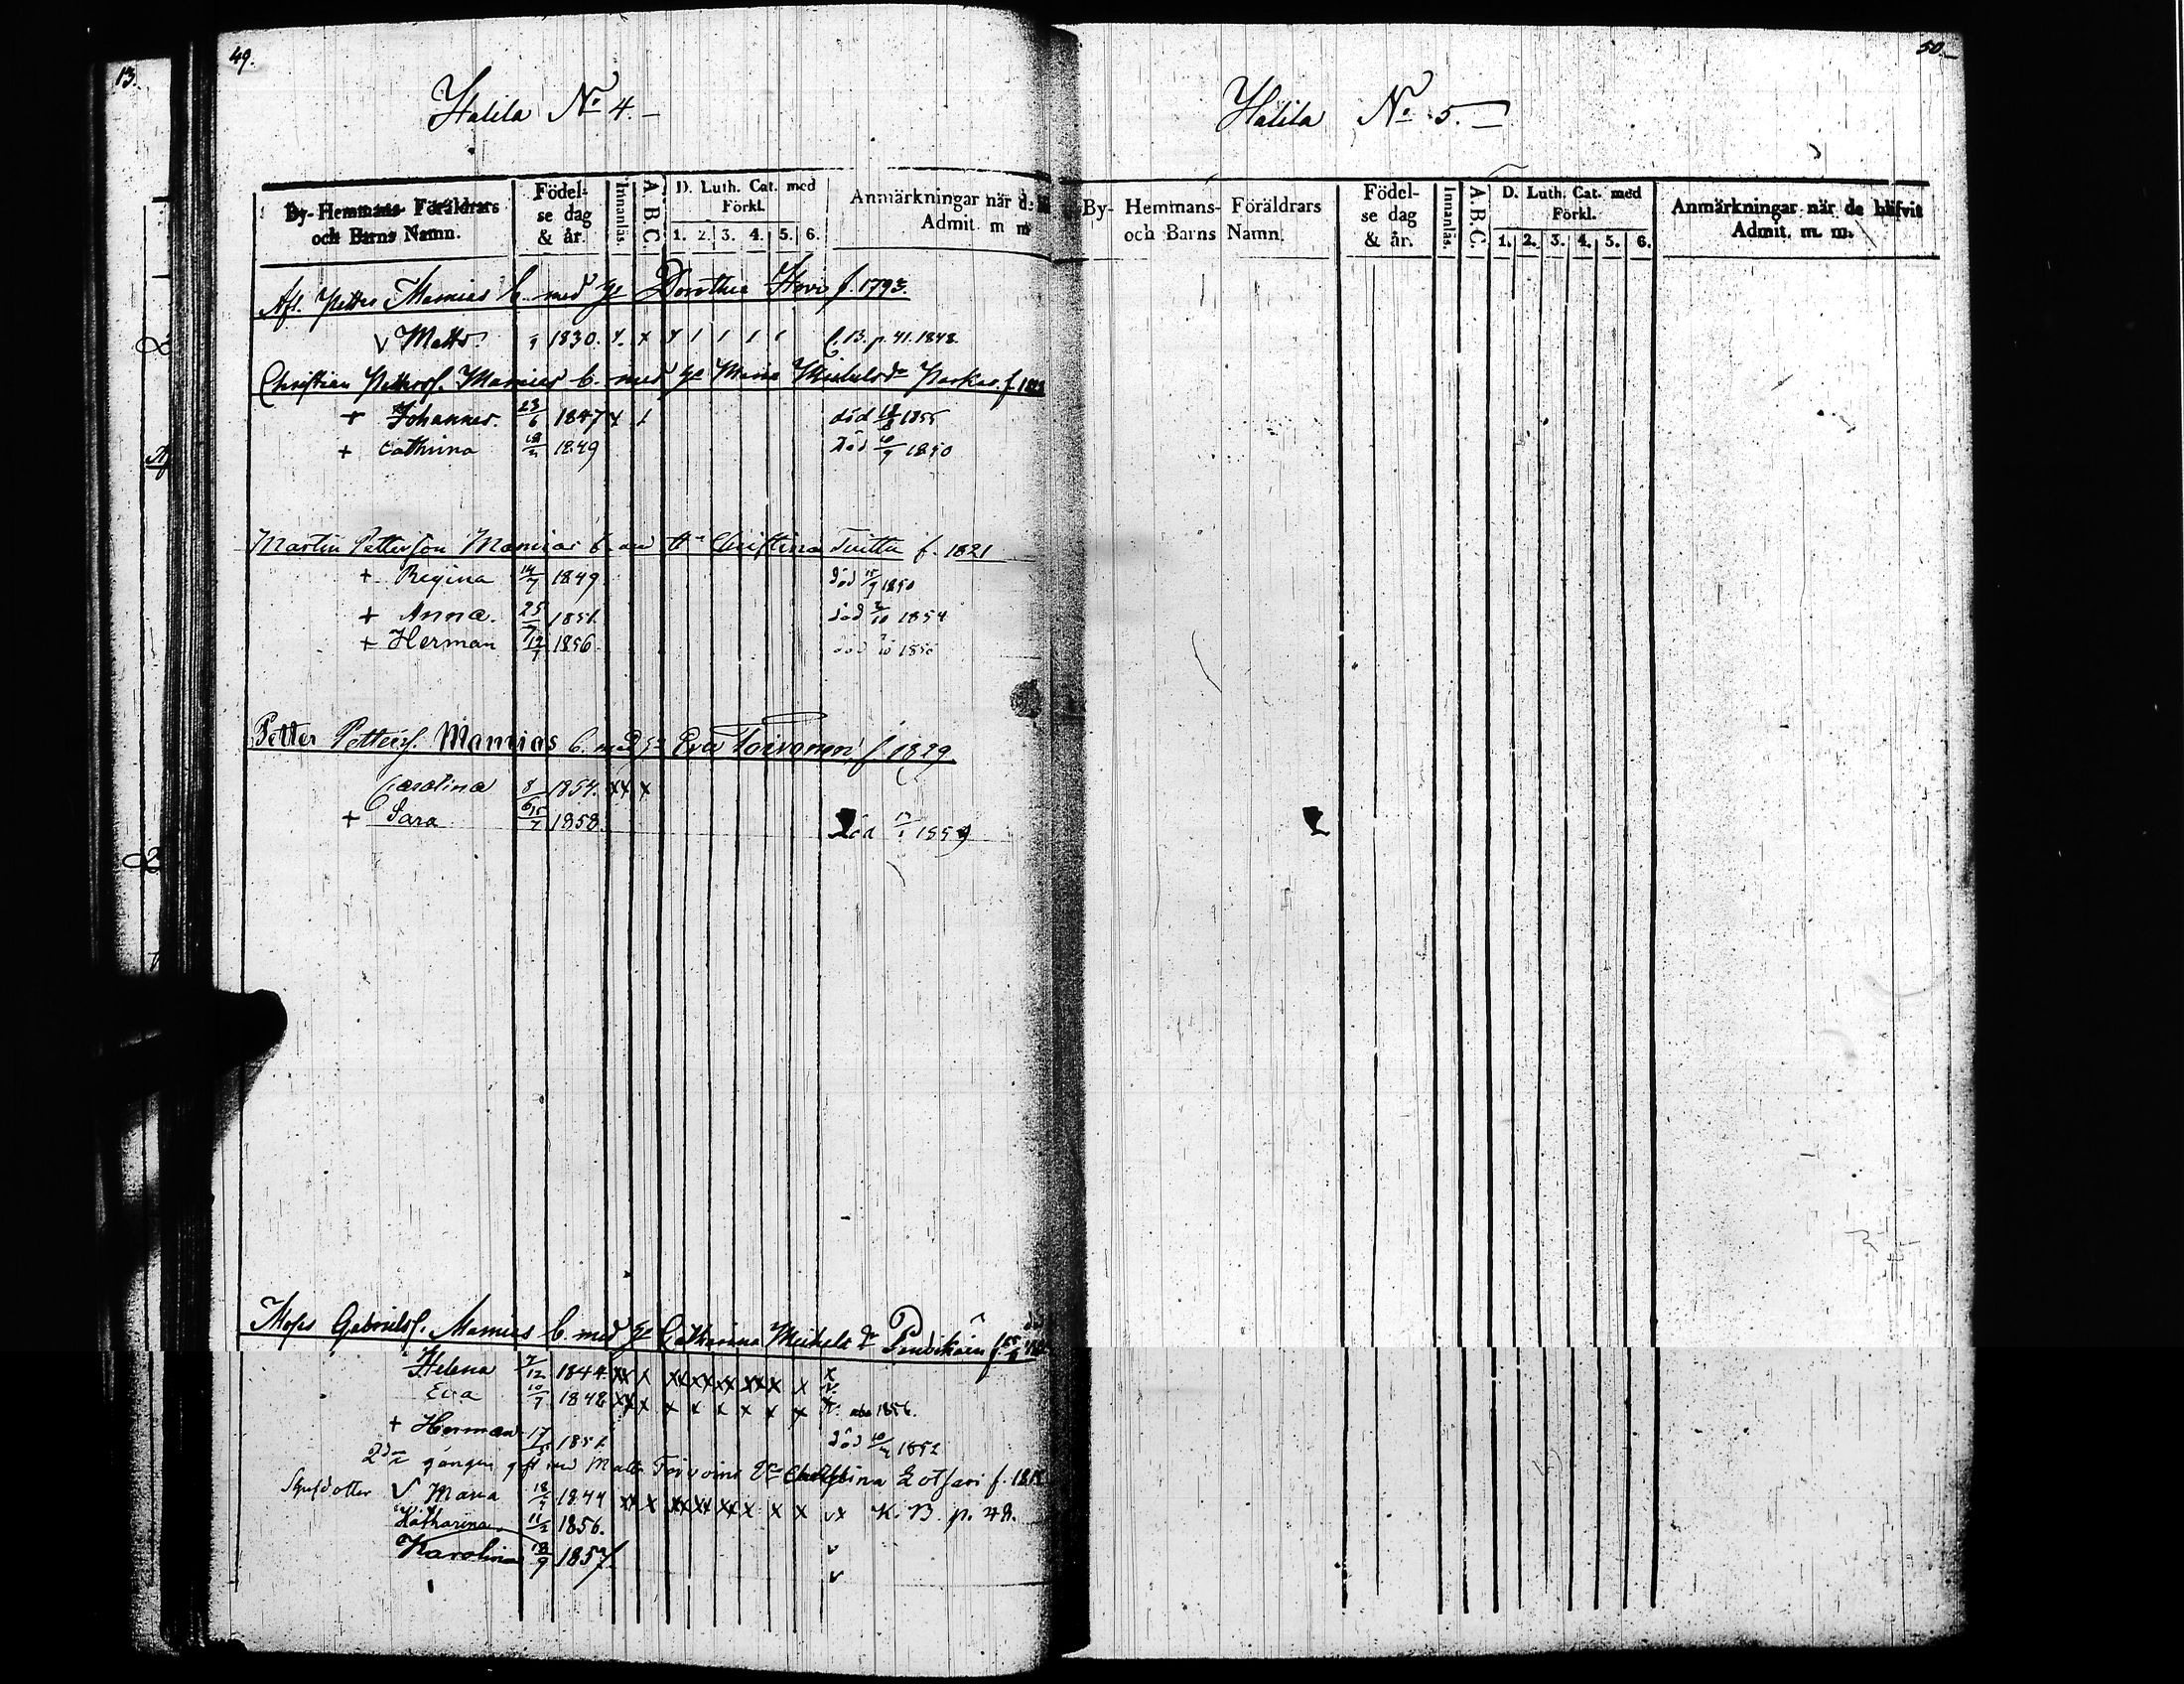 13.
49.
Halila No 4.
By- Hemmans- Föräldrars och Barns Namn.
Födelse dag & år.
Innanläs.
A. B. C.
D. Luth. Cat. med Förkl.
1. 2. 3. 4. 5. 6.
Anmärkningar när de
Admit. m m
Afl. Petter Mamias b. med Dorothea Hovi f. 1793.
v Matts. 1830. p. 41. 1848.
Christian Petterss. Mamias b. med Maria Michelsdr
+ Johannes. 23/6 1847 x död 1855
+ Cathrina 1849 död 1850
Martin Petterson Mamias b. Christina Tuitta f. 1821
+ Regina 14/7 1849 död 15/9 1850
+ Anna. 25/7 1851 död 1854
+ Herman 12/7 1856 död
Petter Petterss. Mamias b. med Eva Toivonen f. 1829.
Carolina 8/6 1854. xx x
+ Sara 1858. död 1859
Moses Gabrielss. Mamias b. med Catharina Michelsdr
Helena 7/12 1844 xx x xx xx xx xx x x
Eva 10/7 1848 xx x x x x x x x 1856.
+ Herman 17 1851 död 1852
2dra gången gift med Christina f.
Styfdotter v Maria 18 1844 xx x xx xx xx x x K. B. p. 48.
Katharina 11/2 1856. v
Karolina 18/9 1857. v
50.
Halila No 5.
By- Hemmans- Föräldrars och Barns Namn.
Födelse dag & år.
Innanläs.
A. B. C.
D. Luth. Cat. med Förkl.
1. 2. 3. 4. 5. 6.
Anmärkningar när de blifvit
Admit. m. m.